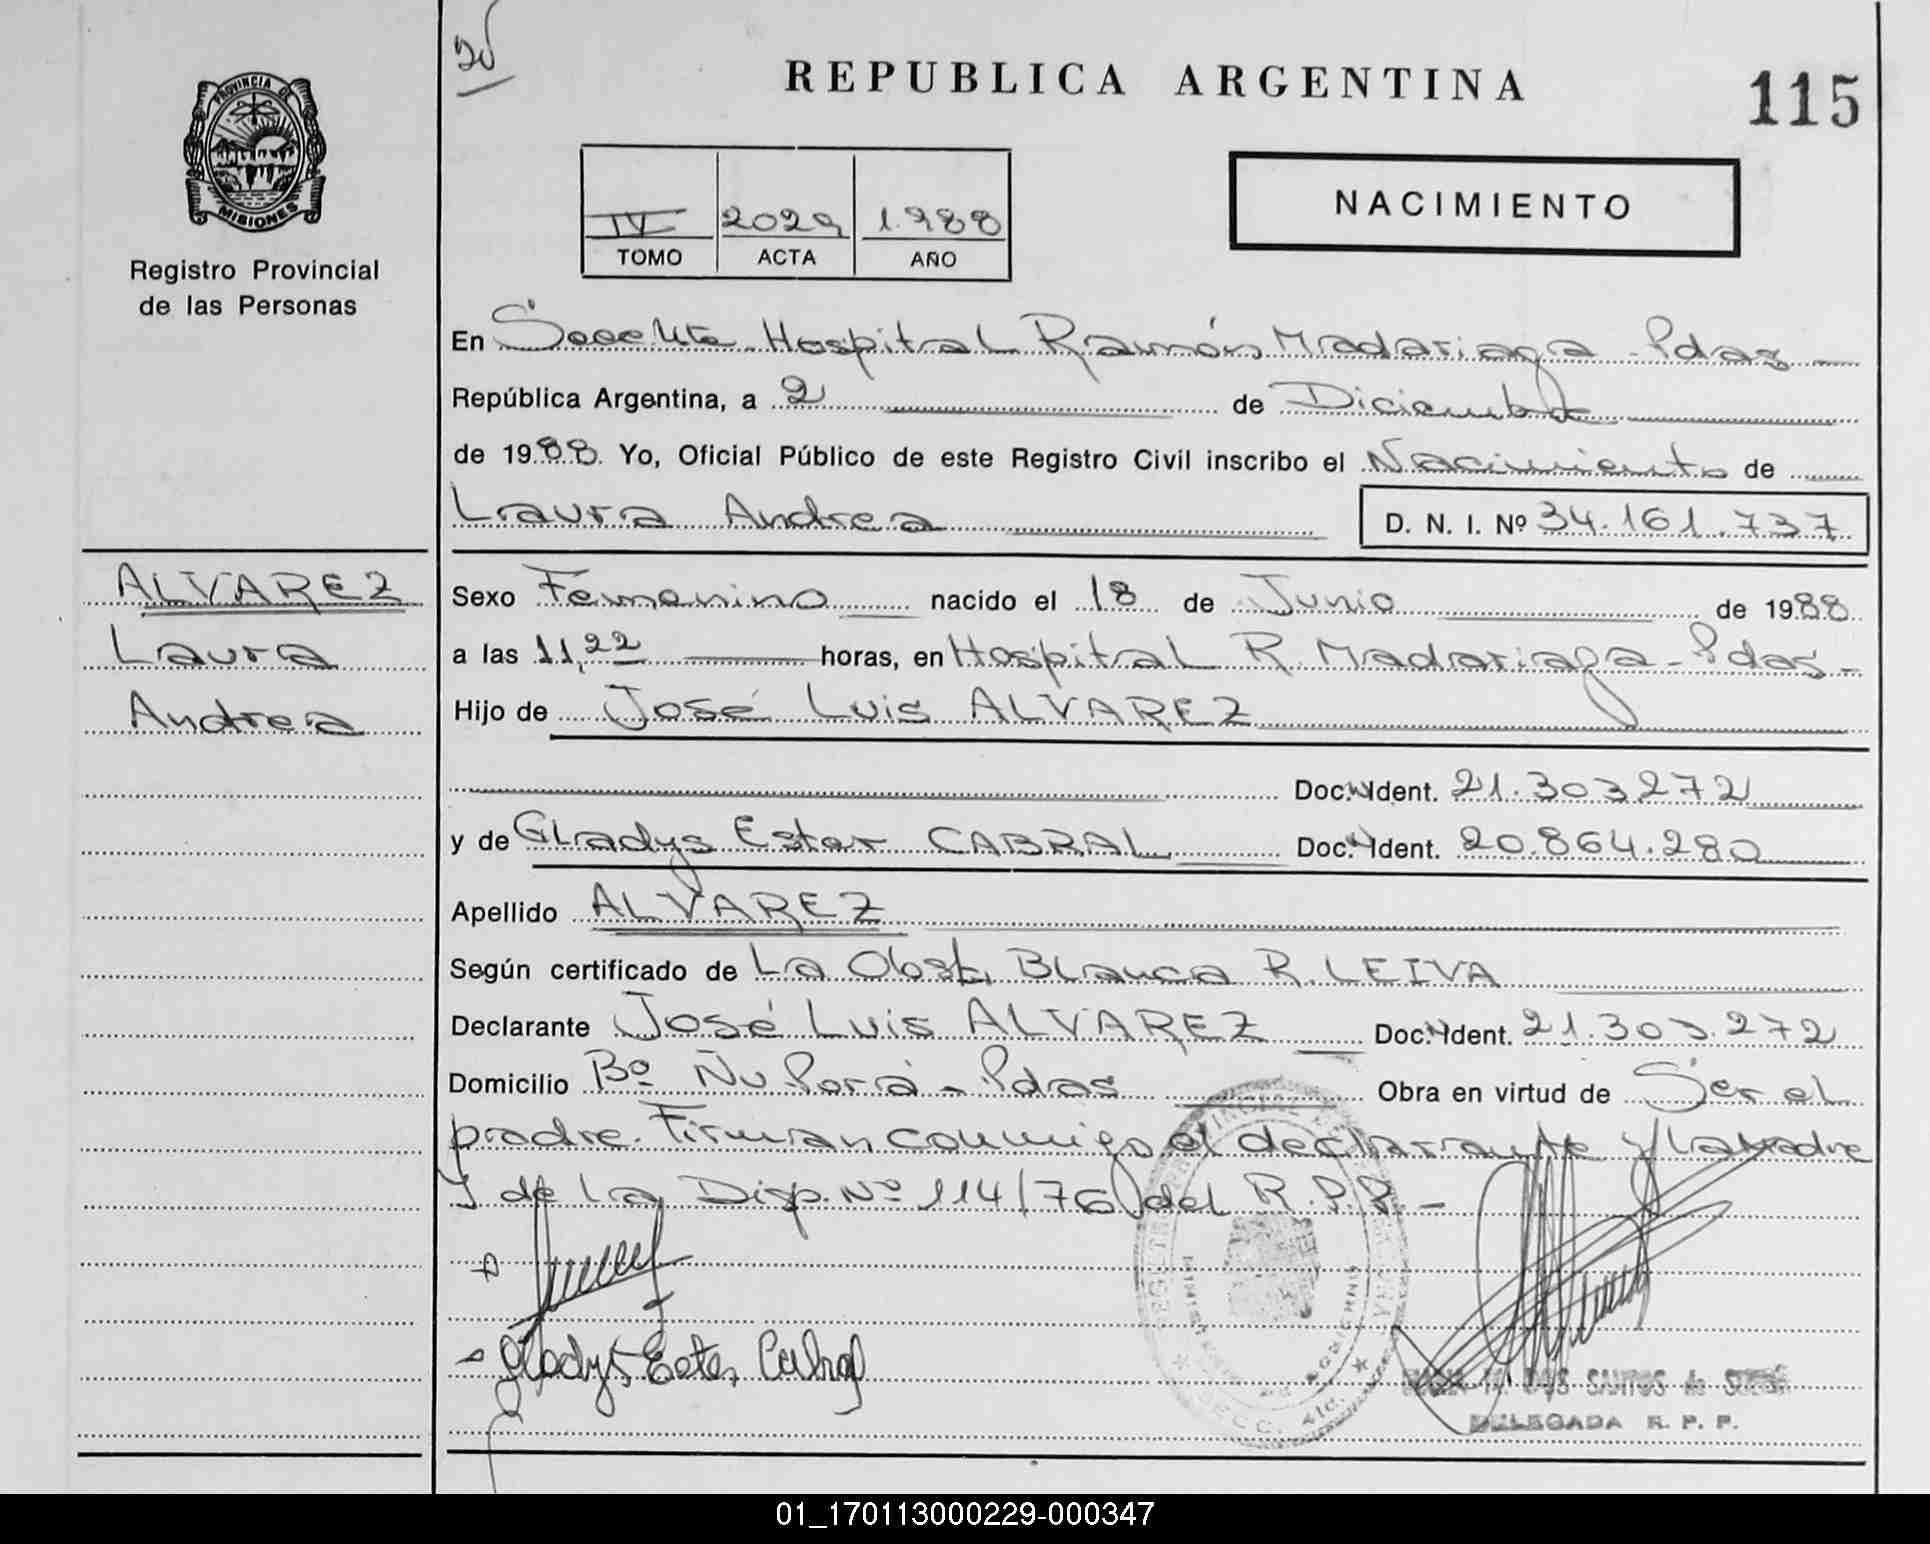 REPUBLICA ARGENTINA
115
PROVINCIA DE
MISIONES
Registro Provincial
de las Personas
NACIMIENTO
IV 2029 1.988
TOMO ACTA AÑO
En Hospital Ramón Madariaga - Pdas
República Argentina, a 2 de Diciembre
de 1988 Yo, Oficial Público de este Registro Civil inscribo el Nacimiento de
Laura Andrea D. N. I. Nº 34.161.737
ALVAREZ
Laura
Andrea
Sexo Femenino nacido el 18 de Junio de 1988
a las 11,22 horas, en Hospital R. Madariaga - Pdas -
Hijo de José Luis ALVAREZ
Doc. Ident. 21.303.272
y de Gladys Ester CABRAL Doc. Ident. 20.864.280
Apellido ALVAREZ
Según certificado de La Obst. Blanca R. LEIVA
Declarante José Luis ALVAREZ Doc. Ident. 21.303.272
Domicilio Bº Ñu Porá - Pdas Obra en virtud de Ser el
padre. Firman conmigo el declarante y la madre
y de la Disp. Nº 114/76 del R.P.P. -
Gladys Ester Cabral
DOS SANTOS de
DELEGADA R. P. P.
01_170113000229-000347